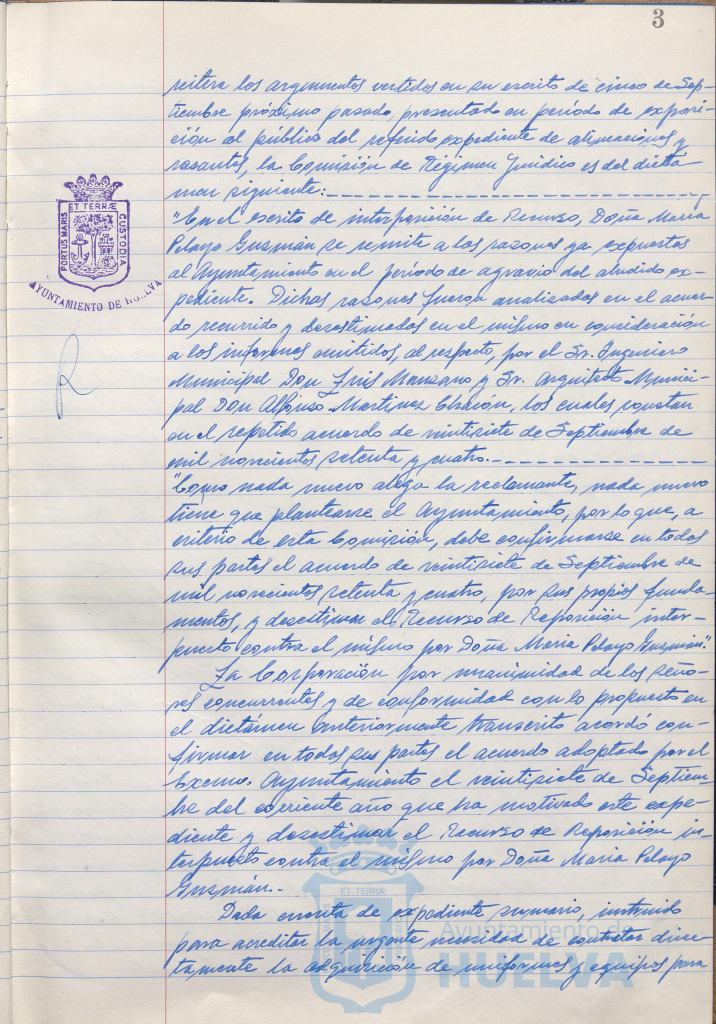 3
reitera los argumentos vertidos en su escrito de cinco de Sep-
tiembre próximo pasado, presentado en período de exposi-
ción al público del referido expediente de alineaciones y
rasantes, la Comisión de Régimen Jurídico es del dicta-
men siguiente:
"En el escrito de interposición de Recurso, Doña María
Pelayo Guzmán se remite a las razones ya expuestas
al Ayuntamiento en el período de agravio del aludido ex-
pediente. Dichas razones fueron analizadas en el acuer-
do recurrido y desestimadas en el mismo en consideración
a los informes emitidos, al respecto, por el Sr. Ingeniero
Municipal Don Luis Manzano y Sr. Arquitecto Munici-
pal Don Alfonso Martinez Chacón, los cuales constan
en el repetido acuerdo de veintisiete de Septiembre de
mil novecientos setenta y cuatro.
"Como nada nuevo alega la reclamante, nada nuevo
tiene que plantearse el Ayuntamiento, por lo que, a
criterio de esta Comisión, debe confirmarse en todas
sus partes el acuerdo de veintisiete de Septiembre de
mil novecientos setenta y cuatro, por sus propios funda-
mentos, y desestimar el Recurso de Reposición inter-
puesto contra el mismo por Doña Maria Pelayo Guzmán".
La Corporación por unanimidad de los seño-
res concurrentes y de conformidad con lo propuesto en
el dictámen anteriormente transcrito acordó con-
firmar en todas sus partes el acuerdo adoptado por el
Excmo. Ayuntamiento el veintisiete de Septiem-
bre del corriente año que ha motivado este expe-
diente y desestimar el Recurso de Reposición in-
terpuesto contra el mismo por Doña Maria Pelayo
Guzmán.-
Dada cuenta de expediente sumario, instruido
para acreditar la urgente necesidad de contratar direc-
tamente la adquisición de uniformes y equipos para
PORTUS MARIS ET TERRÆ CUSTODIA
AYUNTAMIENTO DE HUELVA
ET TERRÆ
Ayuntamiento de
HUELVA